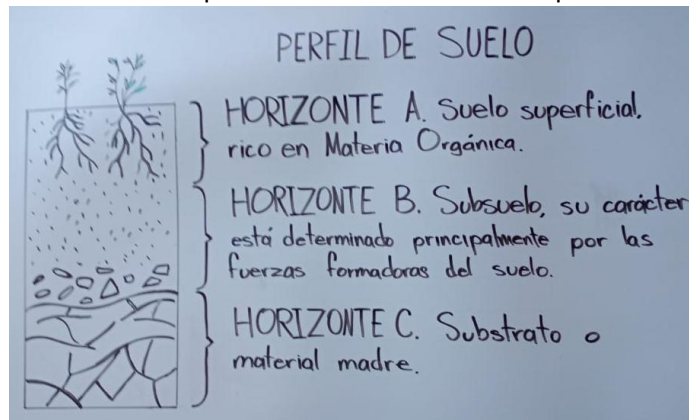 PERFIL DE SUELO
HORIZONTE A. Suelo superficial,
rico en Materia Orgánica.
HORIZONTE B. Subsuelo, su carácter
está determinado principalmente por las
fuerzas formadoras del suelo.
HORIZONTE C. Substrato o
material madre.